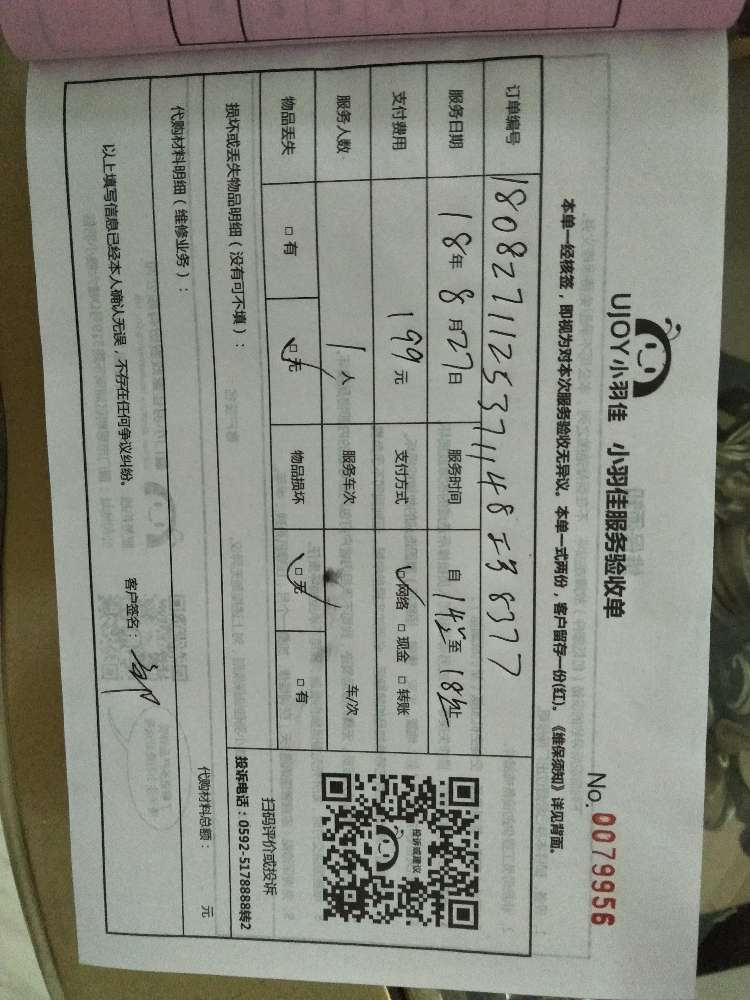 UJOY小羽佳 小羽佳服务验收单
No. 0079956
本单一经核签，即视为对本次服务验收无异议。本单一式两份，客户留存一份(红)。《维保须知》详见背面。
订单编号
服务日期 18年 8月27日 服务时间 自 14 至 18 止
支付费用 199元 支付方式 □网络 □现金 □转账
服务人数 1人 服务车次 车/次
物品丢失 □有 □无 物品损坏 □无 □有
投诉或建议
扫码评价或投诉
投诉电话：0592-5178888转2
损坏或丢失物品明细（没有可不填）：
代购材料明细（维修业务）： 代购材料总额： 元
以上填写信息已经本人确认无误，不存在任何争议纠纷。
客户签名：